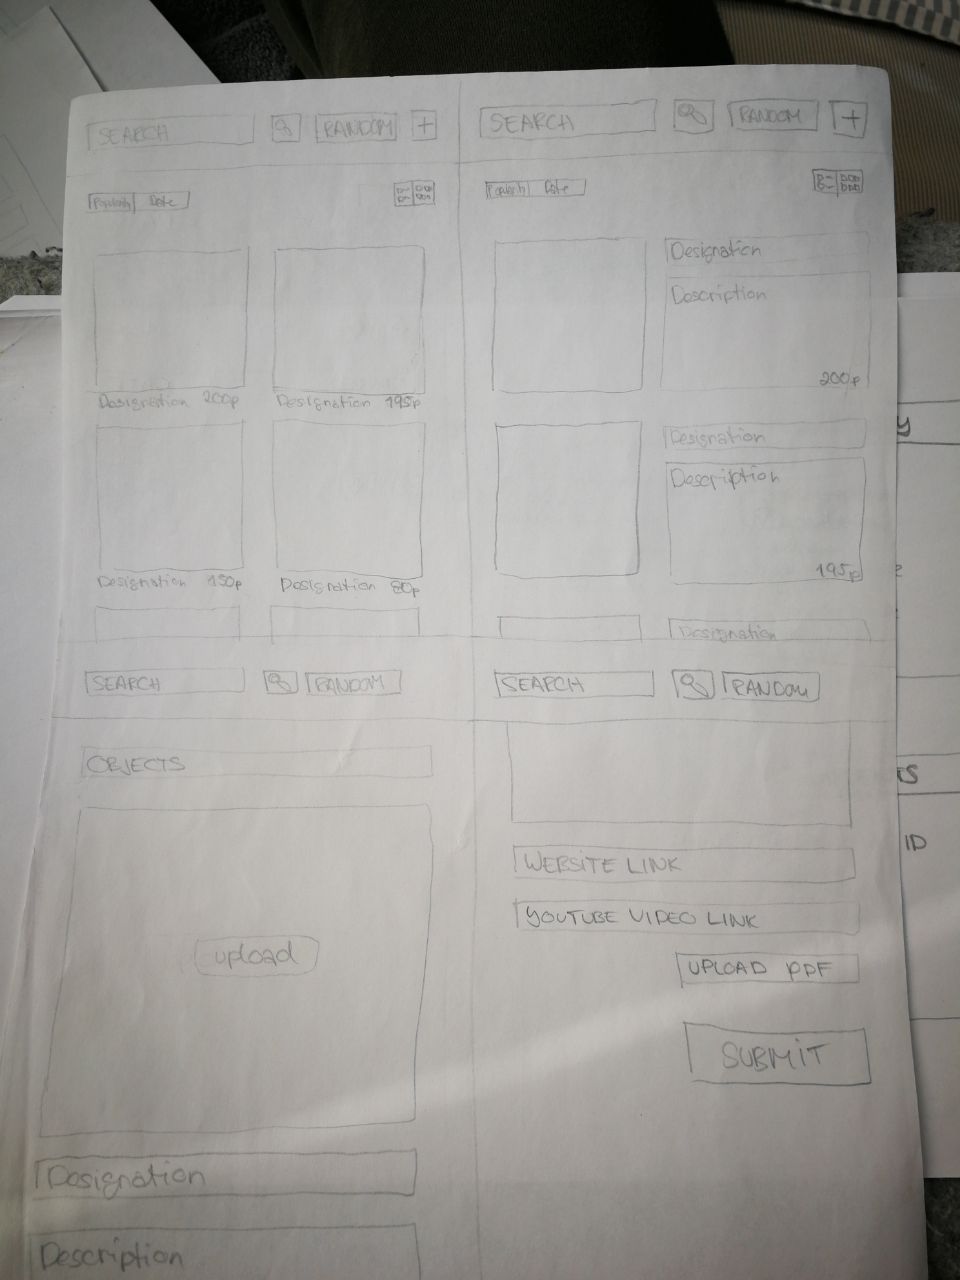 SEARCH RANDOM +
Popularity Date
Designation 200p Designation 195p
Designation 150p Designation 80p
SEARCH RANDOM +
Popularity Date
Designation
Description
200p
Designation
Description
195p
Designation
SEARCH RANDOM
OBJECTS
upload
Designation
Description
SEARCH RANDOM
WEBSITE LINK
YOUTUBE VIDEO LINK
UPLOAD PDF
SUBMIT
Y
S
ID